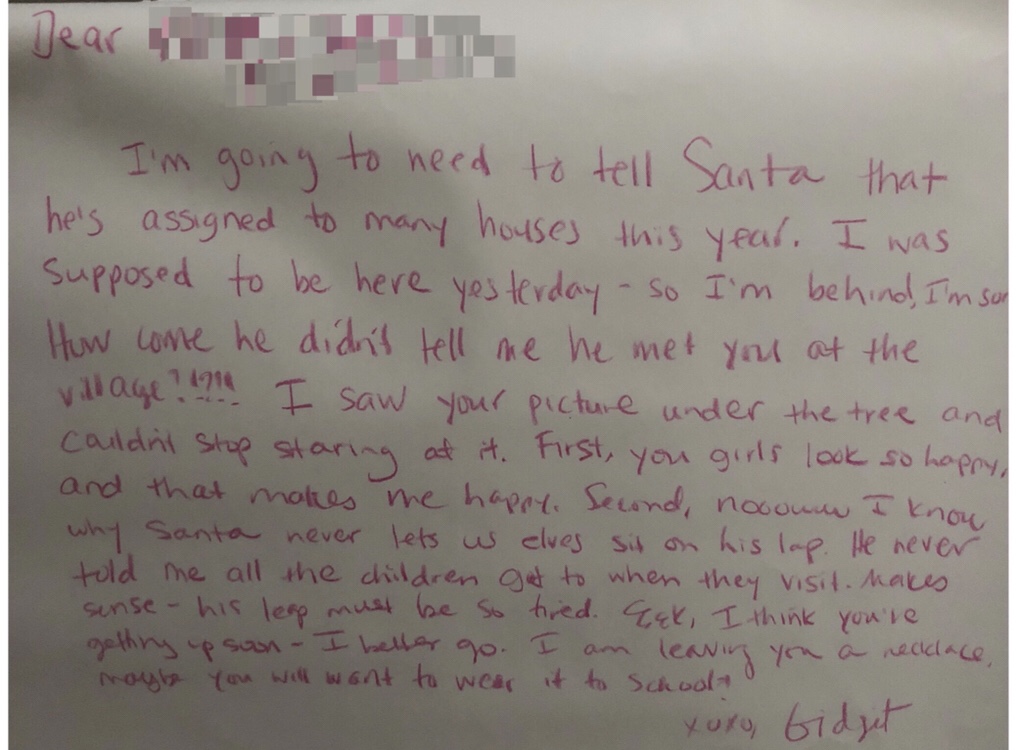 Dear
I'm going to need to tell Santa that
he's assigned to many houses this year. I was
supposed to be here yesterday - so I'm behind, I'm sor
How come he didn't tell me he met you at the
village?!?!?!! I saw your picture under the tree and
couldn't stop staring at it. First, you girls look so happy,
and that makes me happy. Second, nooowww I know
why Santa never lets us elves sit on his lap. He never
told me all the children get to when they visit. Makes
sense - his leap must be so tired. Eek, I think you're
getting up soon - I better go. I am leaving you a necklace,
maybe you will want to wear it to school?
xoxo, Gidget